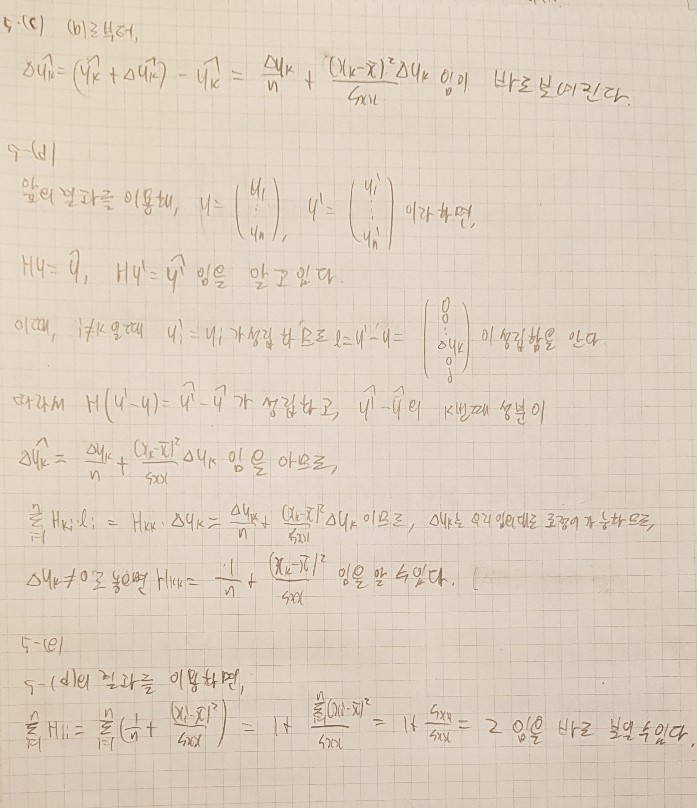 5-(c) (b)로부터,
Δŷₖ = (ŷₖ + Δŷₖ) - ŷₖ = Δyₖ/n + (xₖ-x̄)²Δyₖ/Sxx 임이 바로 보여진다.
5-(d)
앞의 결과를 이용해, y = (y₁ ⋮ yₙ), y' = (y₁' ⋮ yₙ') 이라 하면,
Hy = ŷ, Hy' = ŷ' 임을 알고 있다.
이때, i≠k일때 yᵢ' = yᵢ가 성립하므로 l = y'-y = (0 0 ⋮ Δyₖ 0 0) 이 성립함을 안다
따라서 H(y'-y) = ŷ'-ŷ 가 성립하고, ŷ'-ŷ의 k번째 성분이
Δŷₖ = Δyₖ/n + (xₖ-x̄)²/Sxx Δyₖ 임을 아므로,
Σᵢ₌₁ⁿ Hₖᵢ·lᵢ = Hₖₖ·Δyₖ = Δyₖ/n + (xₖ-x̄)²/Sxx Δyₖ 이므로, Δyₖ는 우리 임의대로 조정이 가능하므로,
Δyₖ≠0로 놓으면 Hₖₖ = 1/n + (xₖ-x̄)²/Sxx 임을 알 수 있다.
5-(e)
5-(d)의 결과를 이용하면,
Σᵢ₌₁ⁿ Hᵢᵢ = Σᵢ₌₁ⁿ (1/n + (xᵢ-x̄)²/Sxx) = 1 + Σᵢ₌₁ⁿ(xᵢ-x̄)²/Sxx = 1 + Sxx/Sxx = 2 임을 바로 보일 수 있다.